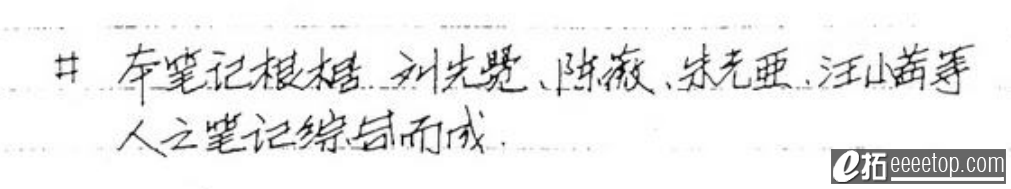 # 本笔记根据 刘先觉、陈薇、朱光亚、汪山茜等
人之笔记综合而成.
e拓 eeeetop.com